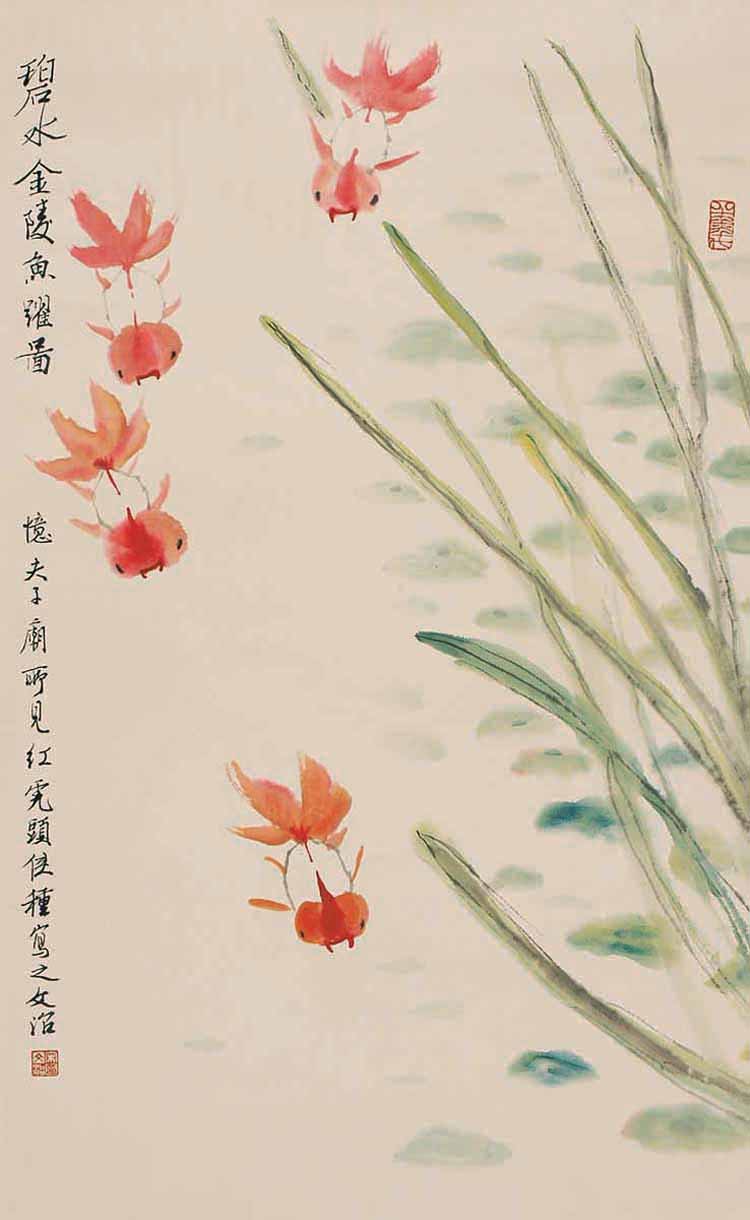 碧水金陵魚躍啚
憶夫子廟所見红虎頭佳種寫之文治